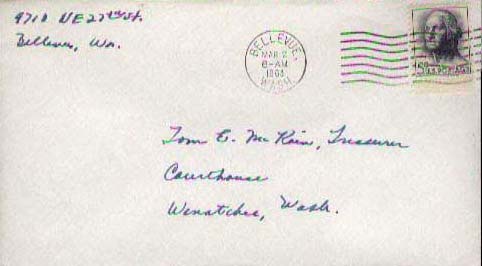 9710 NE 27th St.
Bellevue, Wn.
BELLEVUE,
MAR 2
6-AM
WASH.
U.S. POSTAGE
Tom E. McKoin, Treasurer
Courthouse
Wenatchee, Wash.